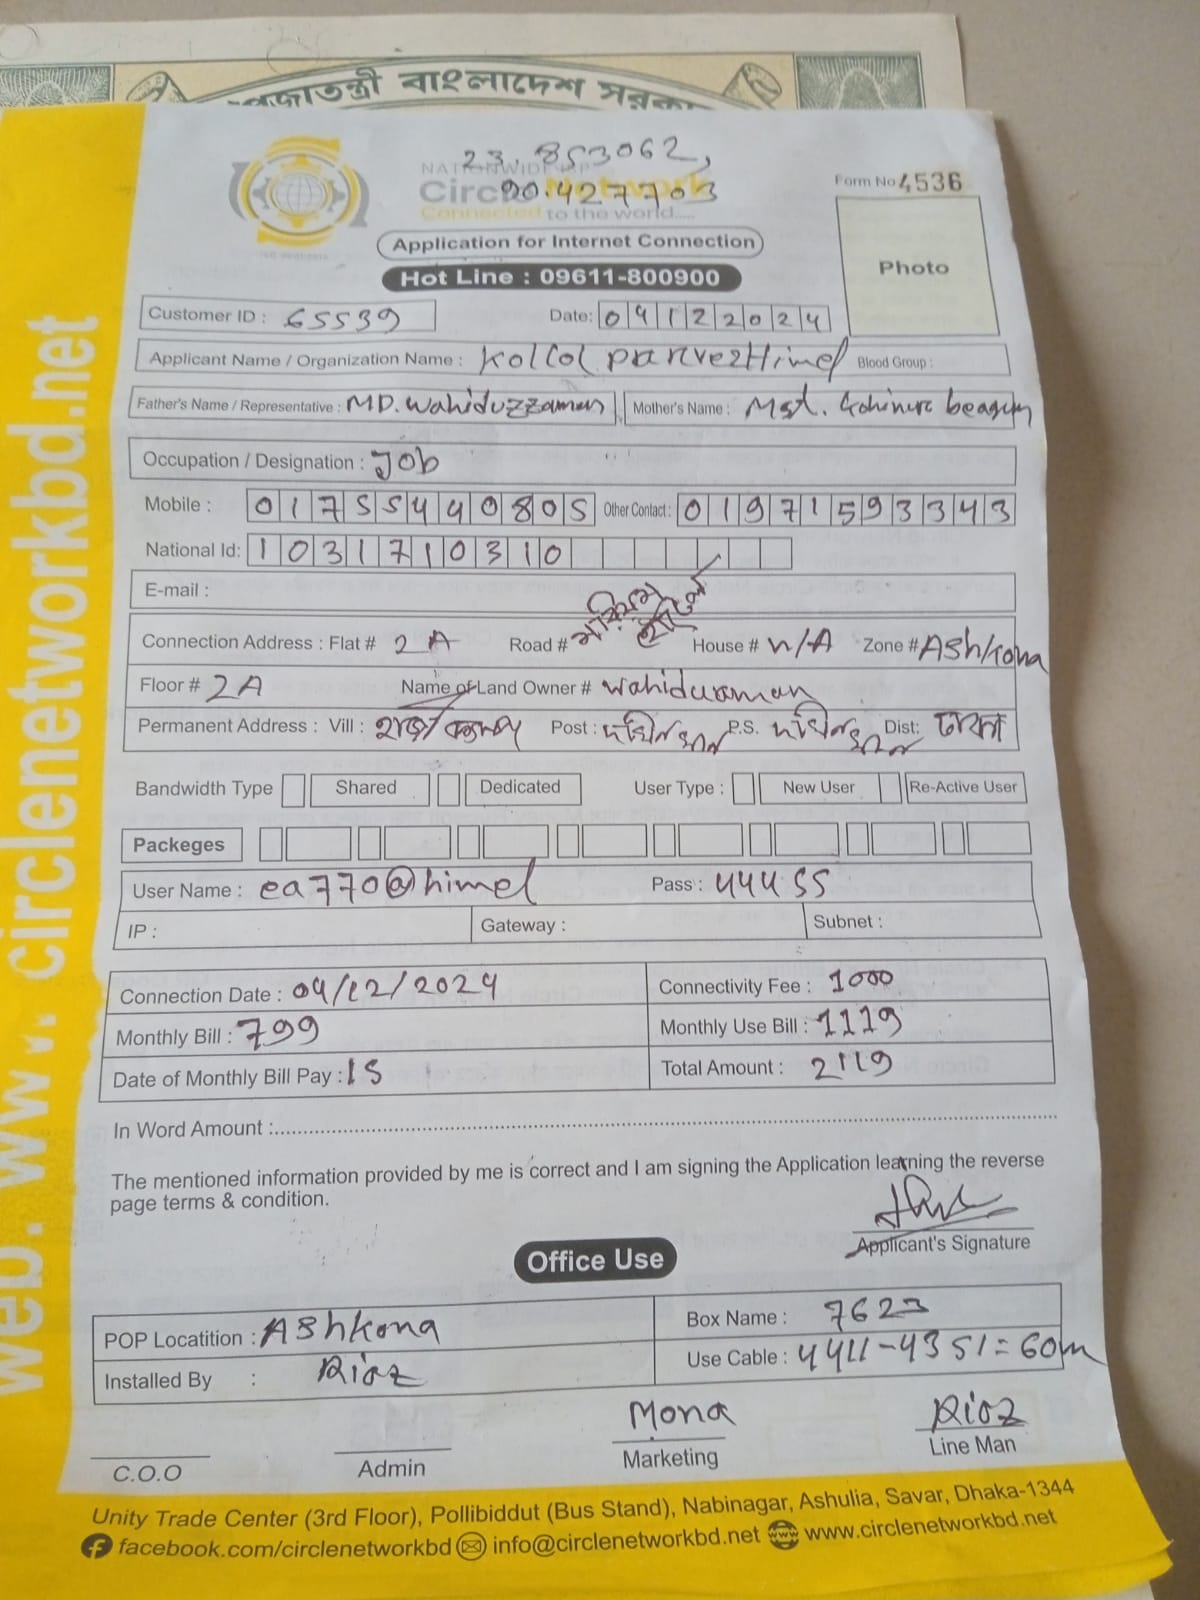 প্রজাতন্ত্রী বাংলাদেশ সরকার
23.853062,
90.427703
NATIONWIDE ISP
Circle Network
Connected to the world....
Form No 4536
Photo
Application for Internet Connection
Hot Line : 09611-800900
Customer ID : 65539 Date: 04122024
Applicant Name / Organization Name : Kollol parvez Himel Blood Group :
Father's Name / Representative : MD. Wahiduzzaman Mother's Name : Mst. beagum
Occupation / Designation : Job
Mobile : 01755440805 Other Contact : 01971593343
National Id: 1031710310
E-mail :
Connection Address : Flat # 2A Road # House # N/A Zone # Ashkona
Floor # 2A Name of Land Owner # Wahiduzaman
Permanent Address : Vill : Post : দক্ষিনখান P.S. দক্ষিনখান Dist: ঢাকা
Bandwidth Type Shared Dedicated User Type : New User Re-Active User
Packeges
User Name : ea770@himel Pass : 44455
IP : Gateway : Subnet :
Connection Date : 04/12/2024 Connectivity Fee : 1000
Monthly Bill : 799 Monthly Use Bill : 1119
Date of Monthly Bill Pay : 15 Total Amount : 2119
In Word Amount :
The mentioned information provided by me is correct and I am signing the Application learning the reverse
page terms & condition.
Applicant's Signature
Office Use
POP Locatition : Ashkona Box Name : 7623
Installed By : Riaz Use Cable : 4411-4351=60m
Mona Riaz
C.O.O Admin Marketing Line Man
Unity Trade Center (3rd Floor), Pollibiddut (Bus Stand), Nabinagar, Ashulia, Savar, Dhaka-1344
facebook.com/circlenetworkbd info@circlenetworkbd.net www.circlenetworkbd.net
web: www.circlenetworkbd.net